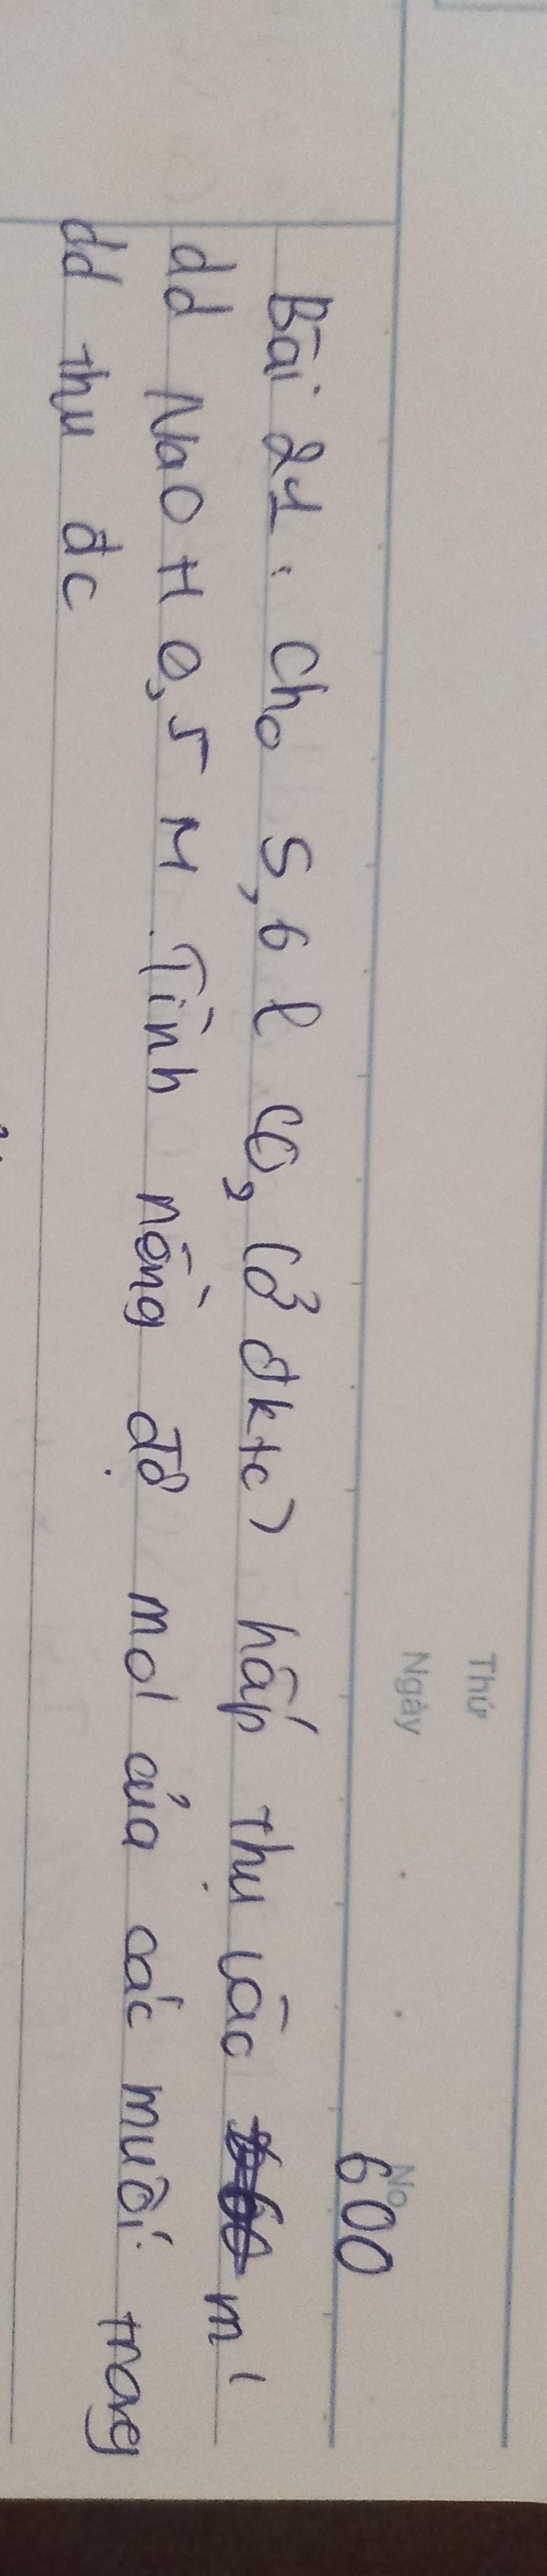 Thứ
Ngày
No
600
Bài 21. Cho 5,6 l CO, (ở đktc) hấp thụ vào ml
dd NaOH 0,5 M. Tình nồng độ mol của các muối trong
dd thu đc